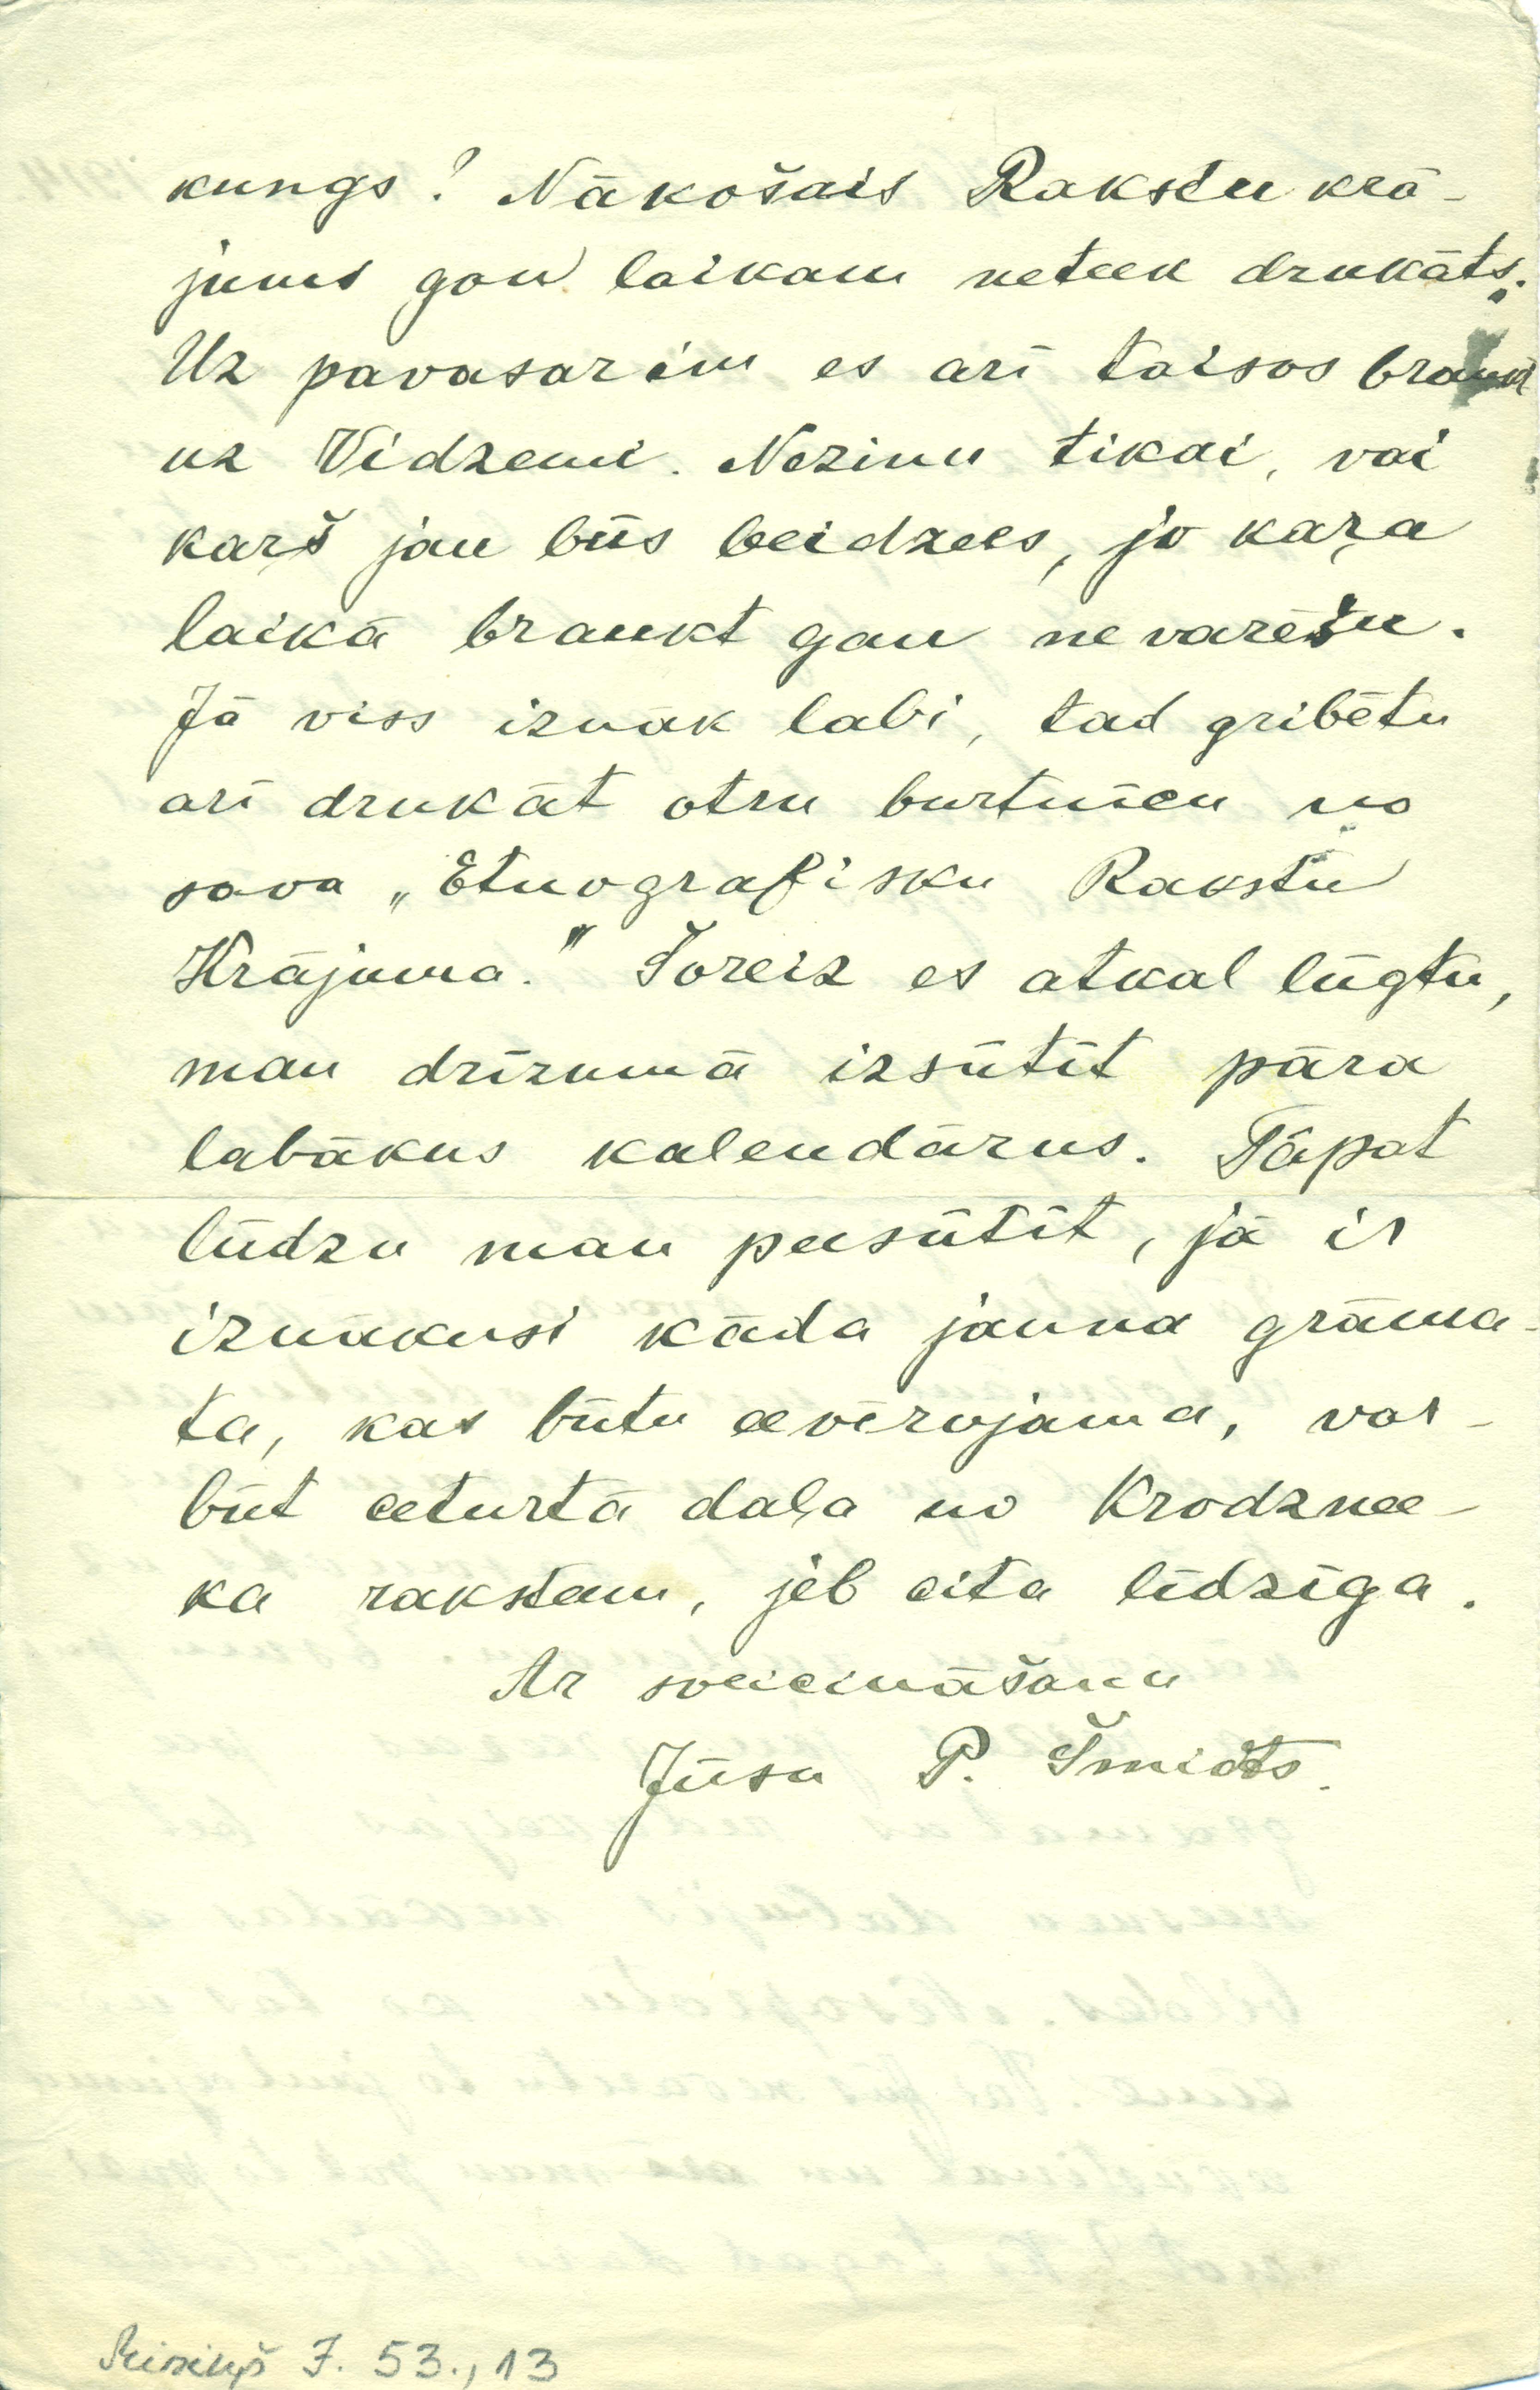 kungs? Nākošais Rakstu krā-
jums gan laikam neteek drukāts.
Uz pavasarim es arī taisos braukt
uz Vidzemi. Nezinu tikai, vai
kaŗš jau būs beidzees, jo kaŗa
laikā braukt gan nevarēšu.
Jā viss iznāk labi, tad gribētu
arī drukāt otru burtnicu no
sava „Etnografisku Rakstu
Krājuma." Šoreiz es atkal lūgtu,
man drīzumā izsūtīt pāra
labākus kalendārus. Tāpat
lūdzu man peesūtīt, jā ir
iznākusi kāda jauna grāma-
ta, kas būtu eevērojama, var-
būt ceturtā daļa no Krodznee-
ka rakstam, jeb cita līdzīga.
Ar sveicināšanu
Jūsu P. Šmidts.
J. 53., 13